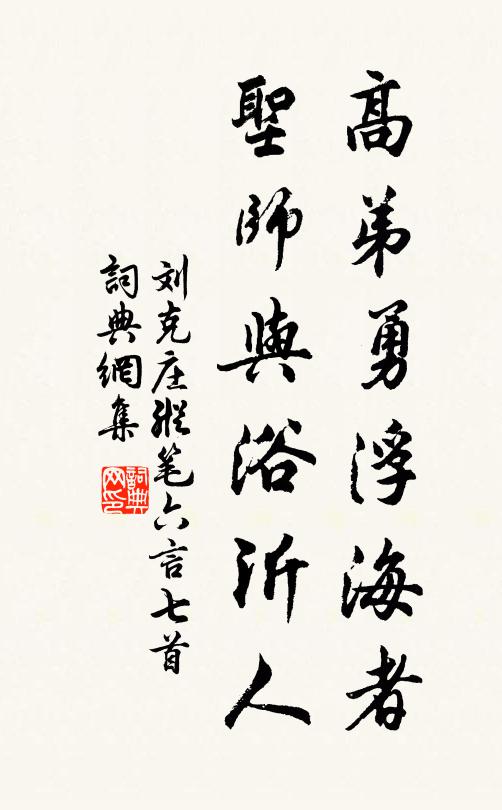 高弟勇浮海者
聖師與浴沂人
刘克庄縱笔六言七首
詞典網集
詞典
网印